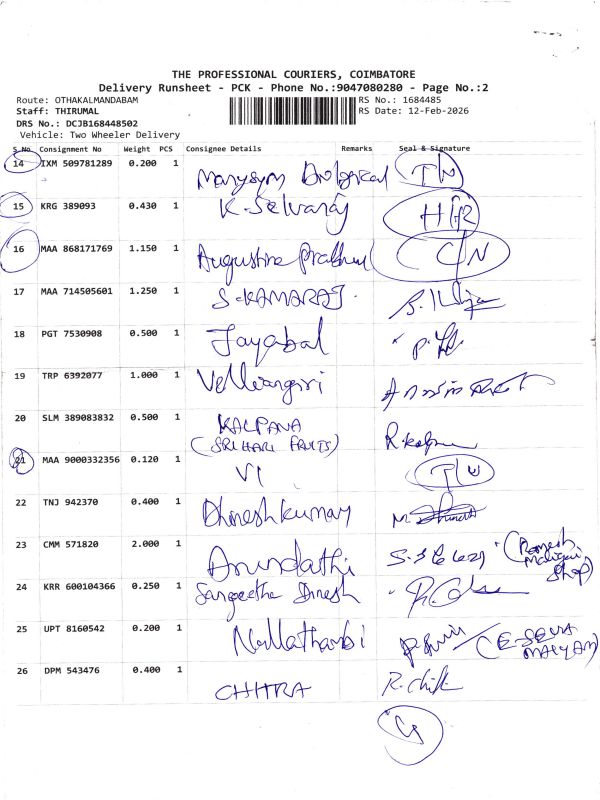 THE PROFESSIONAL COURIERS, COIMBATORE
Delivery Runsheet - PCK - Phone No.:9047080280 - Page No.:2
Route: OTHAKALMANDABAM RS No.: 1684485
Staff: THIRUMAL RS Date: 12-Feb-2026
DRS No.: DCJB168448502
Vehicle: Two Wheeler Delivery
S No Consignment No Weight PCS Consignee Details Remarks Seal & Signature
14 IXM 509781289 0.200 1 T/N
15 KRG 389093 0.430 1 K. Selvaraj
16 MAA 868171769 1.150 1 Augustine C/N
17 MAA 714505601 1.250 1 S. KAMARAJ.
18 PGT 7530908 0.500 1 Jayabal
19 TRP 6392077 1.000 1 Velliangiri
20 SLM 389083832 0.500 1 KALPANA
(SRI HARI FRUITS)
21 MAA 9000332356 0.120 1 VI
22 TNJ 942370 0.400 1 Dhineshkumar
23 CMM 571820 2.000 1 (Ramesh
Shop)
24 KRR 600104366 0.250 1 Sangeetha Dinesh
25 UPT 8160542 0.200 1 Nallathambi (E-SEVA
MAIYAM)
26 DPM 543476 0.400 1 CHITRA